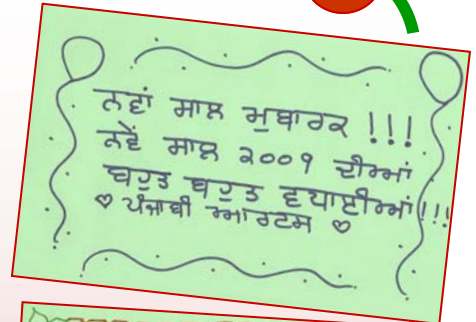 ਨਵਾਂ ਸਾਲ ਮੁਬਾਰਕ !!!
ਨਵੇਂ ਸਾਲ ੨੦੦੧ ਦੀਆਂ
ਬਹੁਤ ਬਹੁਤ ਵਧਾਈਆਂ !!!
♡ ਪੰਜਾਬੀ ਆਰਟਸ ♡